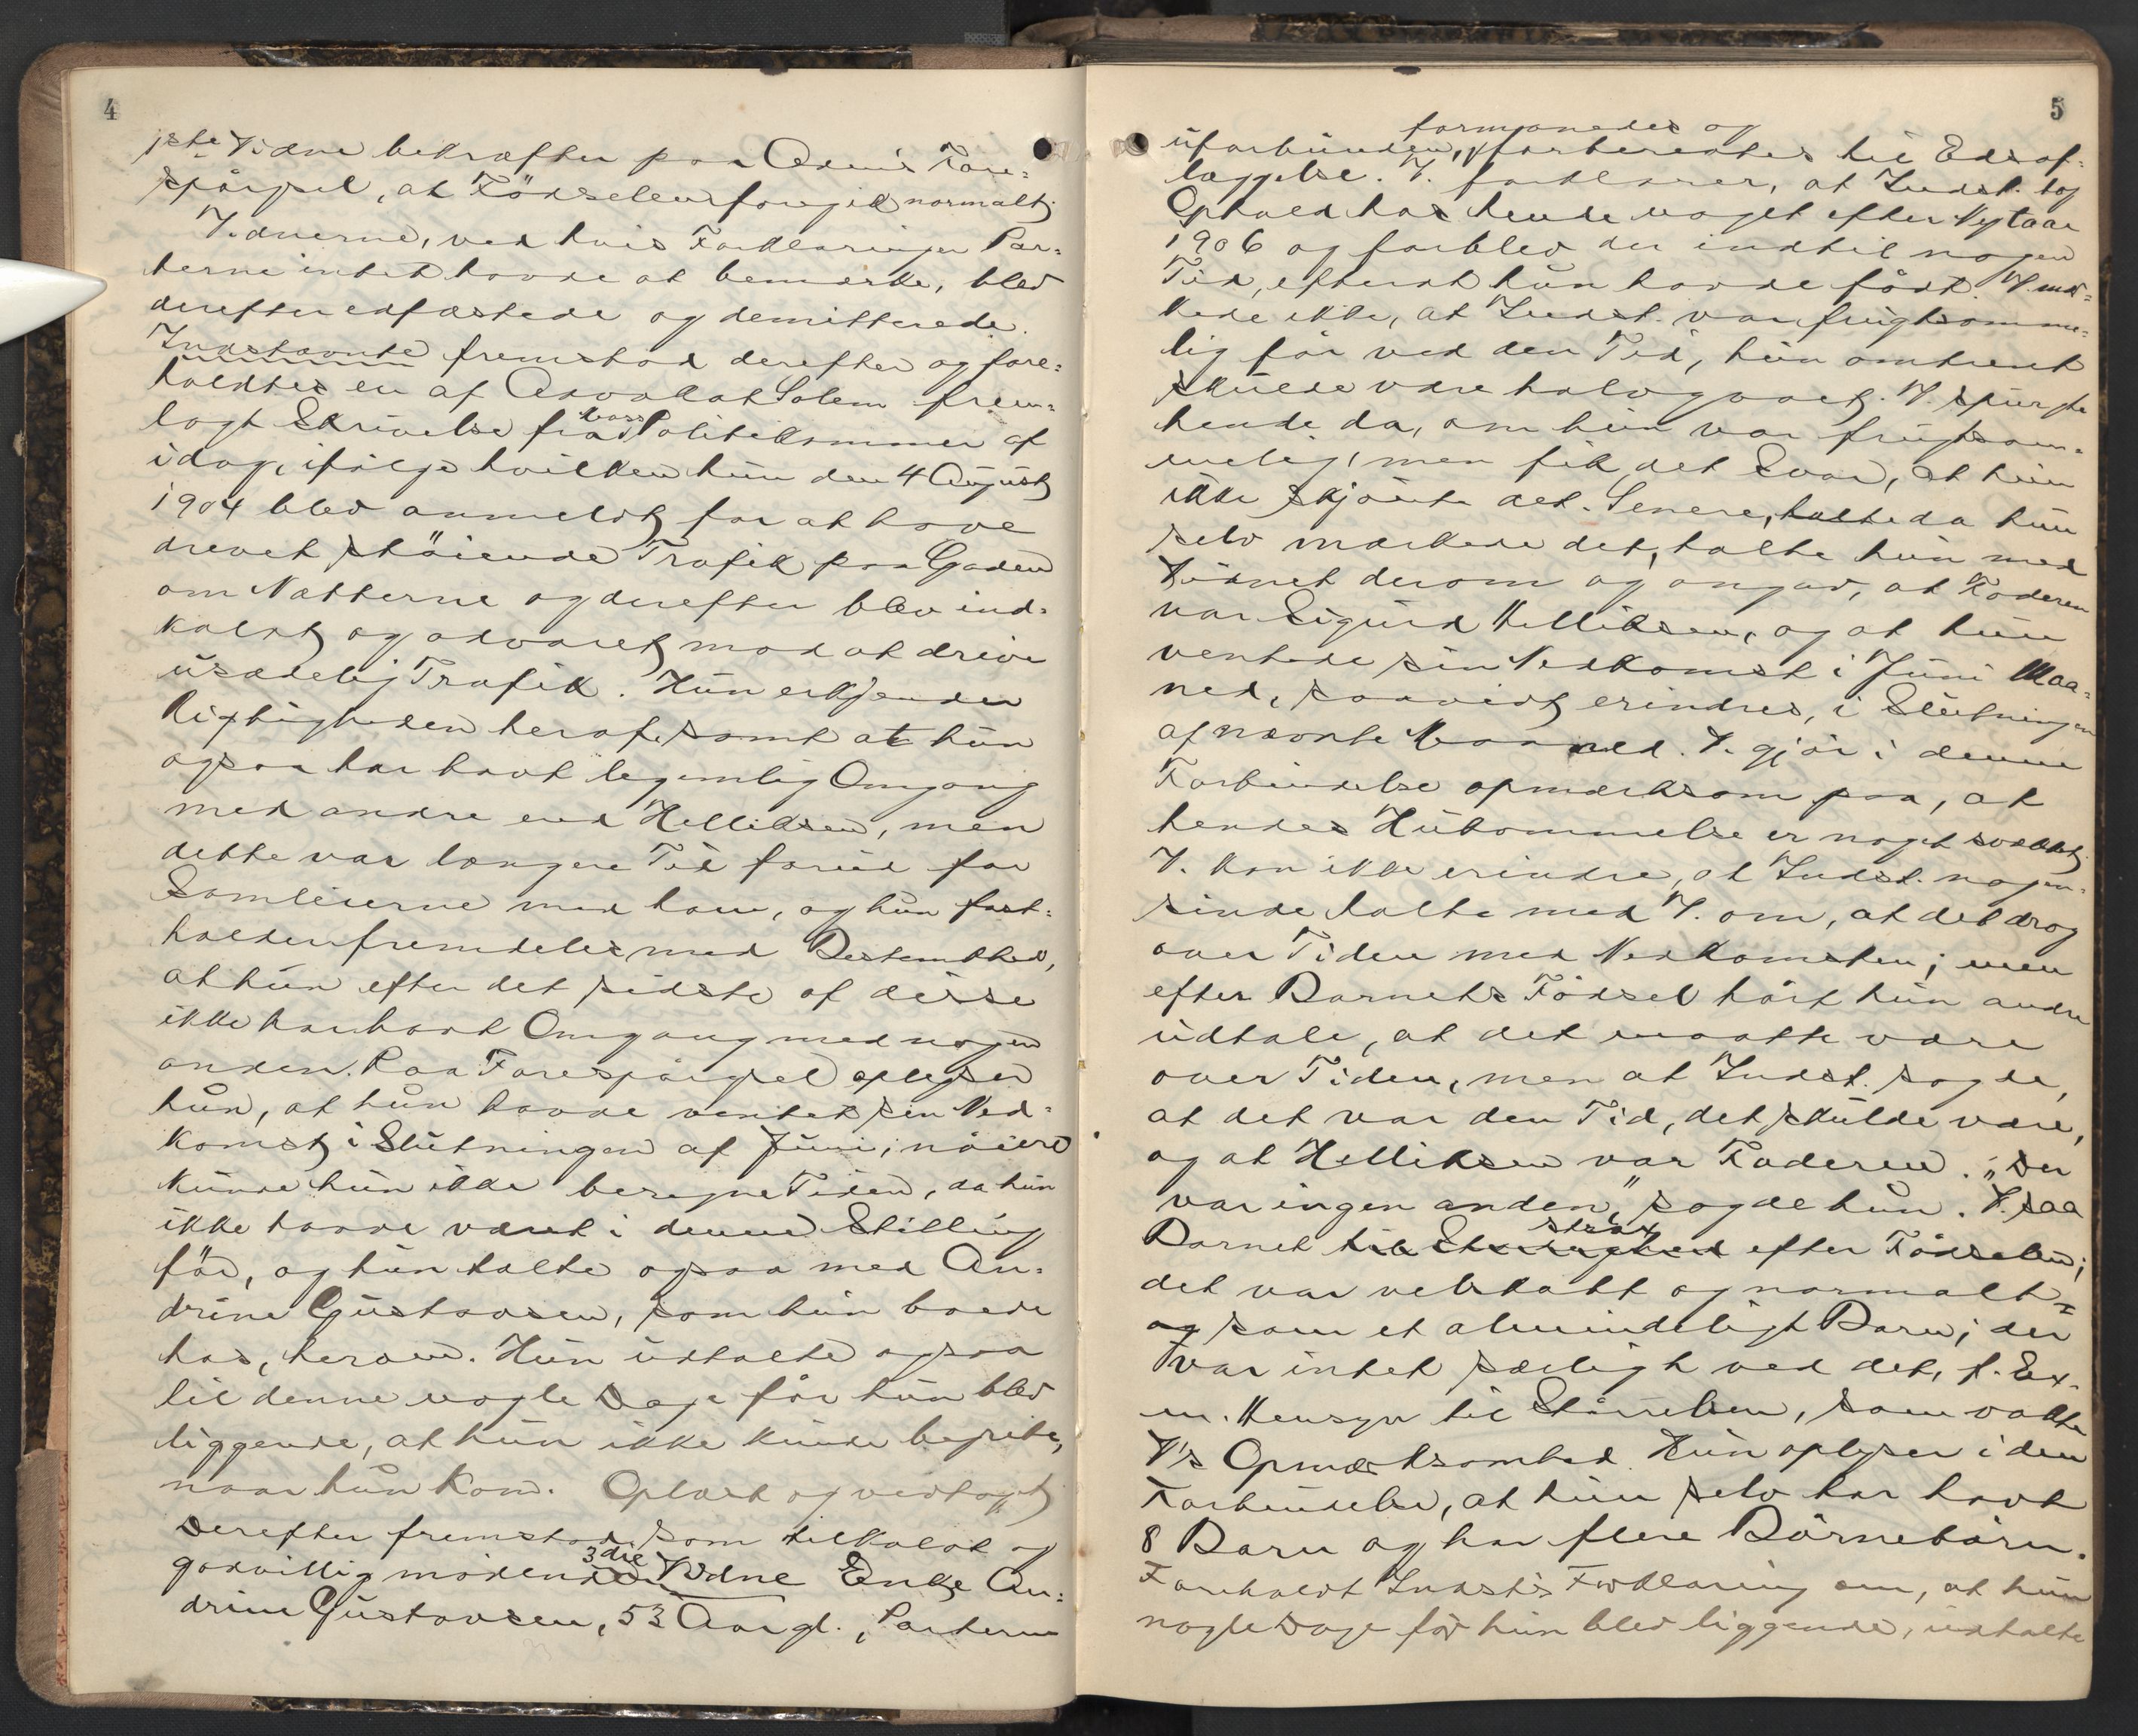 4
1ste Vidne bekræfter paa Adens Fore-
spörgsel, at Födselen foregik normalt.
Vidnerne, ved hvis Forklaringer Par-
terne intet havde at bemærke, blev
derefter edfæstede og demitterede.
Indstævnte fremstod derefter og fore-
holdtes en af Advokat Solem frem-
lagt Skrivelse fra Politikammer af
idag, ifölge hvilken hun den 4 August
1904 blev anmeldt for at have
drevet stöiende Trafik paa Gaden
om Nætterne og derefter blev ind-
kaldt og advaret mod at drive
usædelig Trafik. Hun erkjender
Rigtigheden heraf, samt at hun
ogsaa har havt legemlig Omgang
med andre end Helliksen, men
dette var længere Tid forud for
Samleierne med ham, og hun fast-
holder fremdeles med Bestemthed,
at hun efter det sidste af disse
ikke har havt Omgang med nogen
anden. Paa Forespörgsel oplyser
hun, at hun havde ventet sin Ned-
komst i Slutningen af Juni; nöiere
kunde hun ikke beregne Tiden, da hun
ikke havde været i denne Stilling
för, og hun talte ogsaa med An-
drine Gustavsen, som hun boede
hos, herom. Hun udtalte ogsaa
til denne nogle Dage för hun blev
liggende, at hun ikke kunde begribe,
naar hun kom. Oplæst og vedtaget
Derefter fremstod som tilkaldt og
godvillig mödende 3die Vidne Enke An-
drine Gustavsen, 53 Aar gl., Parterne
5
formanedes og
uforbunden, forberedtes til Edsaf-
læggelse. V. forklarer, at Indst. tog
Ophold hos hende noget efter Nytaar
1906 og forblev der indtil nogen
Tid, efterat hun havde födt. V. mær-
kede ikke, at Indst. var frugtsomme-
lig för ved den Tid, hun omtrent
skulde være halvgaaet. V. spurgte
hende da, om hun var frugtsom-
melig, men fik det Svar, at hun
ikke skjönte det. Senere, talte da hun
selv mærkede det, talte hun med
Vidnet derom og angav, at Faderen
var Sigurd Helliksen, og at hun
ventede sin Nedkomst i Juni Maa-
ned, saavidt erindres, i Slutningen
af nævnte Maaned. V. gjör i denne
Forbindelse opmærksom paa, at
hendes Hukommelse er noget svækket
V. kan ikke erindre, at Indst. nogen-
sinde talte med V. om, at det drog
over Tiden med Nedkomsten; men
efter Barnets Födsel hört hun andre
udtale, at det maatte være
over Tiden, men at Indst. sagde,
at det var den Tid, det skulde være,
og at Helliksen var Faderen. "Der
var ingen anden," sagde hun. V. saa
Barnet til strax efter Födselen;
det var velskabt og normalt-
og som et almindeligt Barn; der
var intet særligt ved det, f. Ex.
m. Hensyn til Störrelsen, som vakte
V's Opmærksomhed. Hun oplyser i den
Forbindelse, at hun selv har havt
8 Barn og har flere Börnebörn.
Foreholdt Indst's Forklaring om, at hun
nogle Dage för hun blev liggende, udtalte